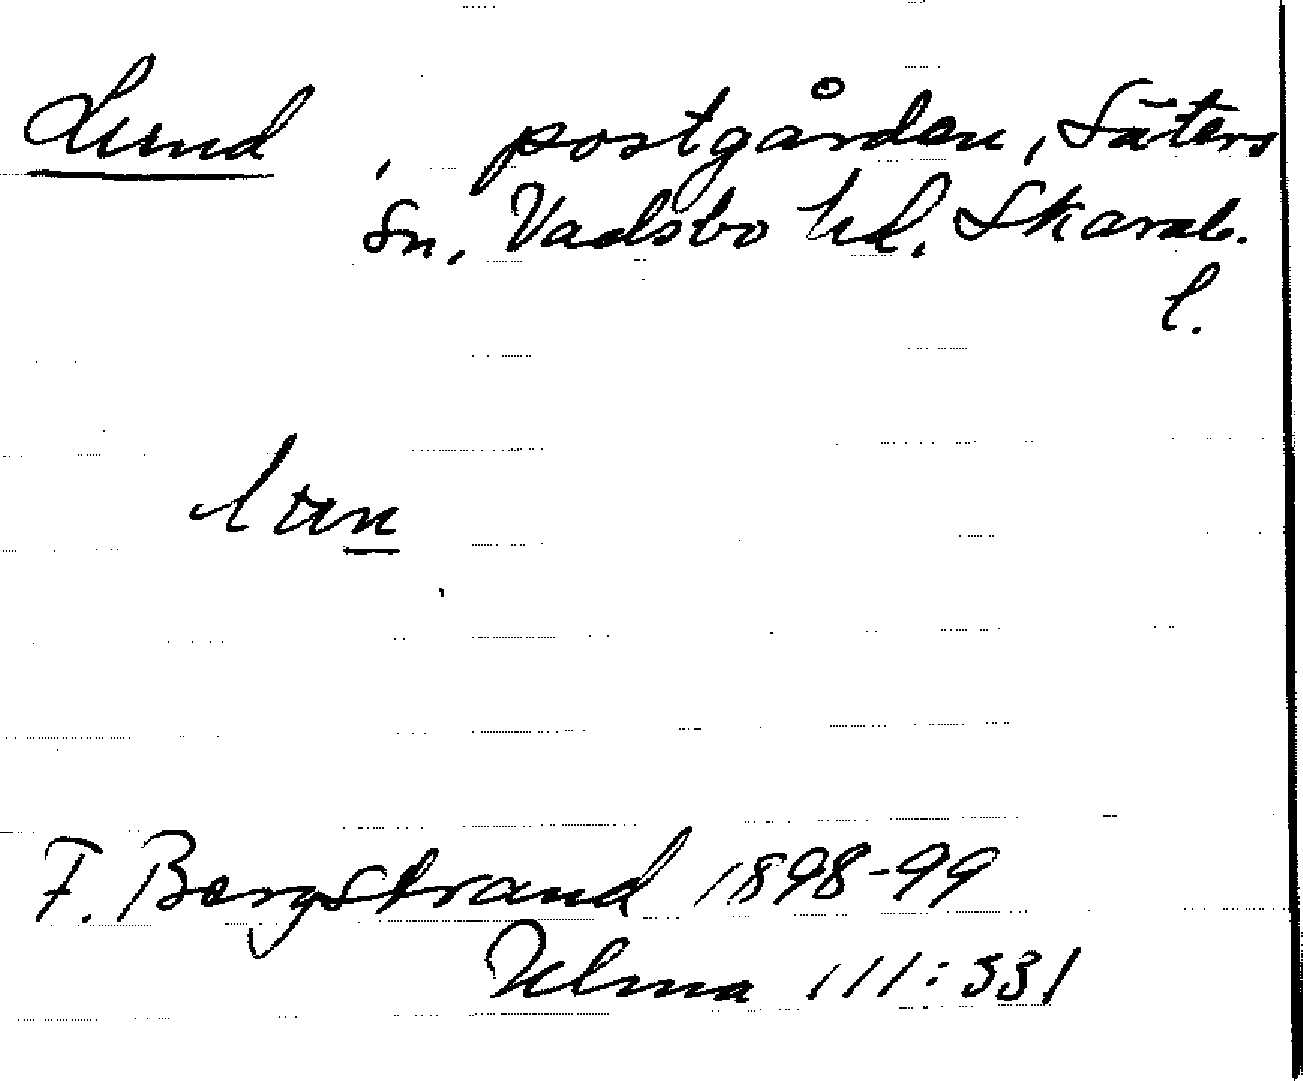 Lund, postgården, Säters
Sn, Vadsbo hd, Skarab.
l.
F. Bergstrand 1898-99
Ulma 111:331